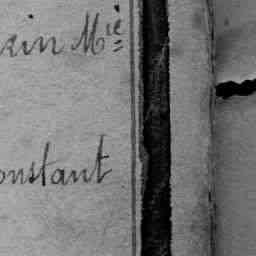 ein Mie
onstant